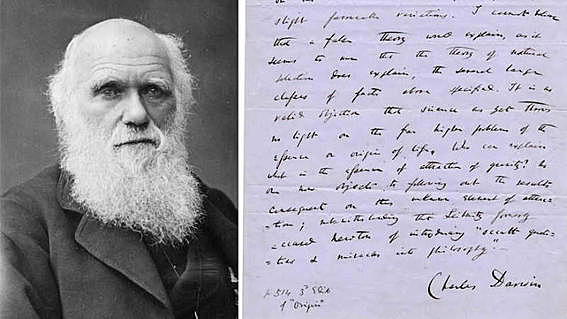 slight favourable variations. I cannot believe
that a false theory would explain, as it
seems to me that the theory of natural
selection does explain, the several large
classes of facts above specified. It is no
valid objection that science as yet throws
no light on the far higher problem of the
essence or origin of life. Who can explain
what is the essence of attraction of gravity? No
one now objects to following out the results
consequent on this unknown element of attrac-
=tion; notwithstanding that Leibnitz formerly
accused Newton of introducing "occult quali-
=ties & miracles into philosophy".—
Charles Darwin
p 514 3d Edit
of "Origin"